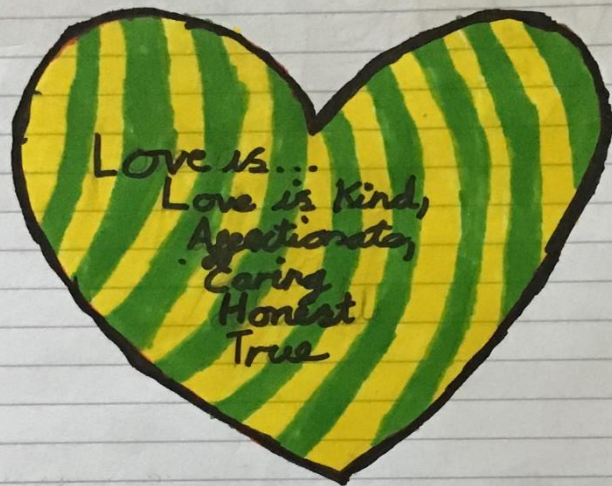 Love is...
Love is Kind,
Affectionate,
Caring
Honest
True